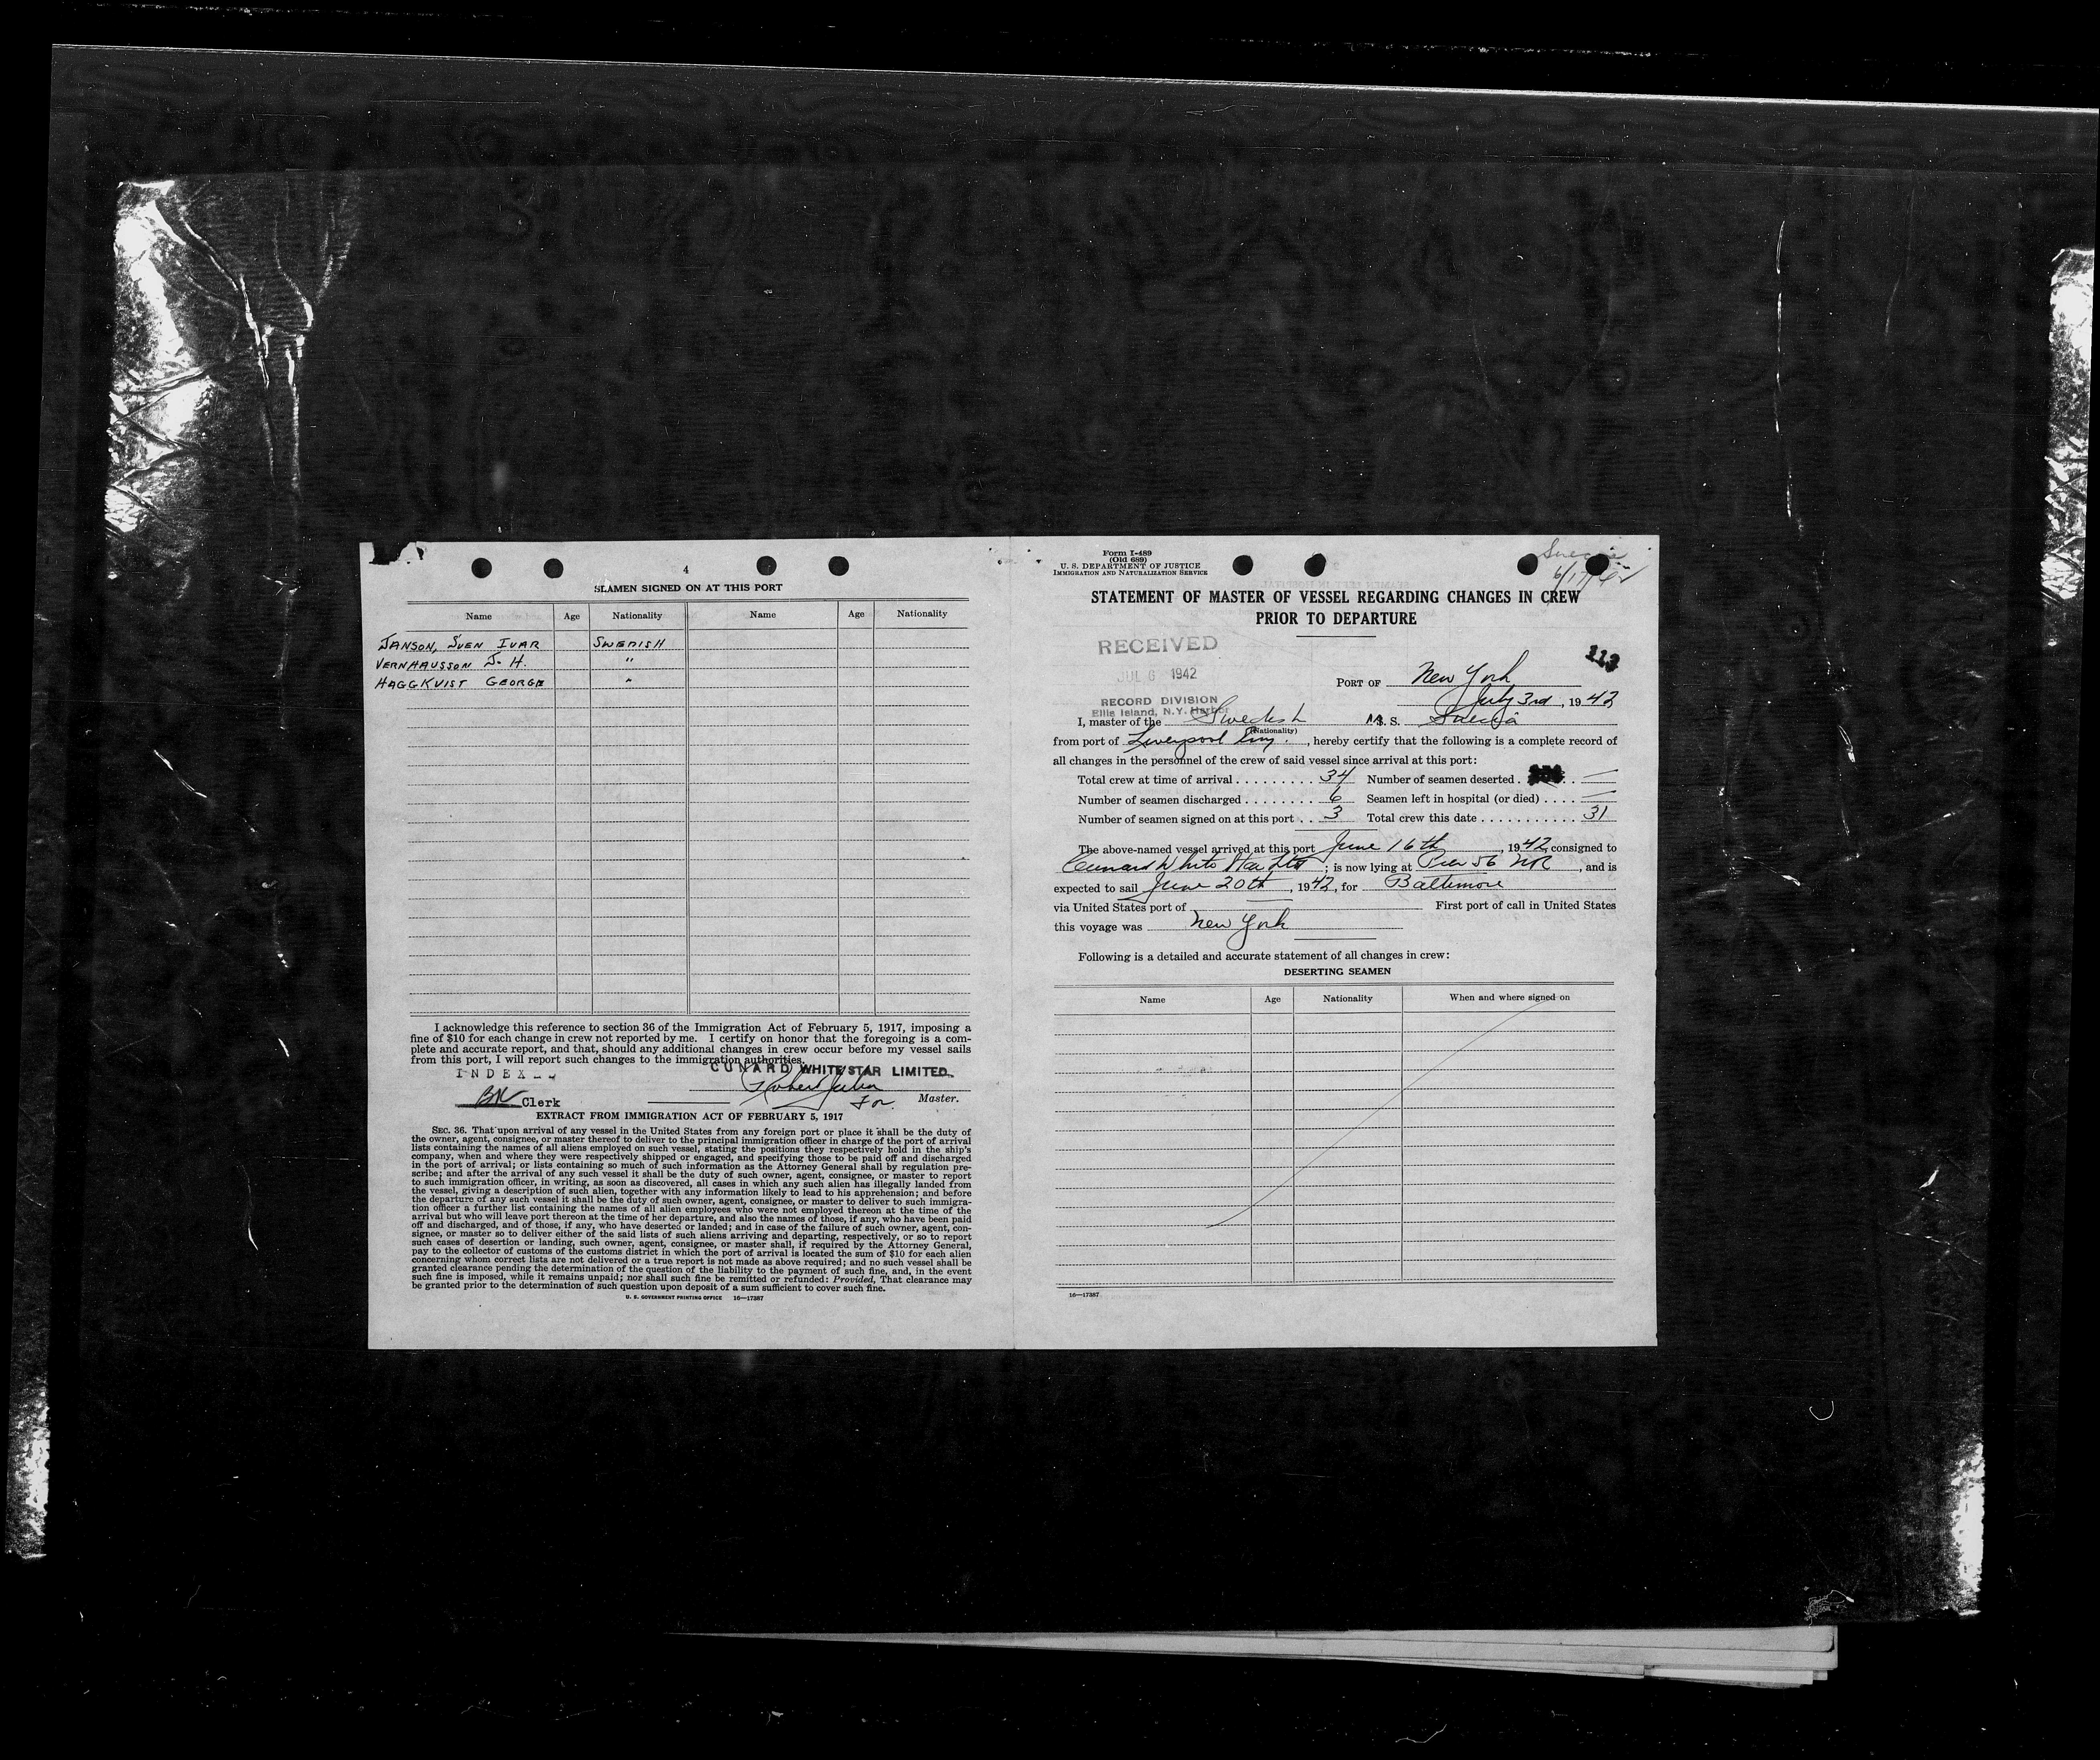 4
SEAMEN SIGNED ON AT THIS PORT
Name Age Nationality Name Age Nationality
JANSON, SVEN IVAR SWEDISH
VERNHAUSSON J. H. "
HAGGKVIST GEORGE "
I acknowledge this reference to section 36 of the Immigration Act of February 5, 1917, imposing a
fine of $10 for each change in crew not reported by me. I certify on honor that the foregoing is a com-
plete and accurate report, and that, should any additional changes in crew occur before my vessel sails
from this port, I will report such changes to the immigration authorities.
CUNARD WHITE STAR LIMITED.
INDEX
BK Clerk
For Master.
EXTRACT FROM IMMIGRATION ACT OF FEBRUARY 5, 1917
SEC. 36. That upon arrival of any vessel in the United States from any foreign port or place it shall be the duty of
the owner, agent, consignee, or master thereof to deliver to the principal immigration officer in charge of the port of arrival
lists containing the names of all aliens employed on such vessel, stating the positions they respectively hold in the ship's
company, when and where they were respectively shipped or engaged, and specifying those to be paid off and discharged
in the port of arrival; or lists containing so much of such information as the Attorney General shall by regulation pre-
scribe; and after the arrival of any such vessel it shall be the duty of such owner, agent, consignee, or master to report
to such immigration officer, in writing, as soon as discovered, all cases in which any such alien has illegally landed from
the vessel, giving a description of such alien, together with any information likely to lead to his apprehension; and before
the departure of any such vessel it shall be the duty of such owner, agent, consignee, or master to deliver to such immigra-
tion officer a further list containing the names of all alien employees who were not employed thereon at the time of the
arrival but who will leave port thereon at the time of her departure, and also the names of those, if any, who have been paid
off and discharged, and of those, if any, who have deserted or landed; and in case of the failure of such owner, agent, con-
signee, or master so to deliver either of the said lists of such aliens arriving and departing, respectively, or so to report
such cases of desertion or landing, such owner, agent, consignee, or master shall, if required by the Attorney General,
pay to the collector of customs of the customs district in which the port of arrival is located the sum of $10 for each alien
concerning whom correct lists are not delivered or a true report is not made as above required; and no such vessel shall be
granted clearance pending the determination of the question of the liability to the payment of such fine, and, in the event
such fine is imposed, while it remains unpaid; nor shall such fine be remitted or refunded: Provided, That clearance may
be granted prior to the determination of such question upon deposit of a sum sufficient to cover such fine.
U. S. GOVERNMENT PRINTING OFFICE 16—17387
Form I-489
(Old 689)
U. S. DEPARTMENT OF JUSTICE
IMMIGRATION AND NATURALIZATION SERVICE
Suecia
6/17/42
STATEMENT OF MASTER OF VESSEL REGARDING CHANGES IN CREW
PRIOR TO DEPARTURE
RECEIVED
JUL 6 1942
RECORD DIVISION
Ellis Island, N.Y. Harbor
113
PORT OF New York
July 3rd, 1942
I, master of the Swedish M. S. Suecia
(Nationality)
from port of Liverpool Eng., hereby certify that the following is a complete record of
all changes in the personnel of the crew of said vessel since arrival at this port:
Total crew at time of arrival 34 Number of seamen deserted —
Number of seamen discharged 6 Seamen left in hospital (or died) —
Number of seamen signed on at this port 3 Total crew this date 31
The above-named vessel arrived at this port June 16th, 1942, consigned to
Cunard White Star Ltd; is now lying at Pier 56 NR, and is
expected to sail June 20th, 1942, for Baltimore
via United States port of First port of call in United States
this voyage was New York
Following is a detailed and accurate statement of all changes in crew:
DESERTING SEAMEN
Name Age Nationality When and where signed on
16—17387